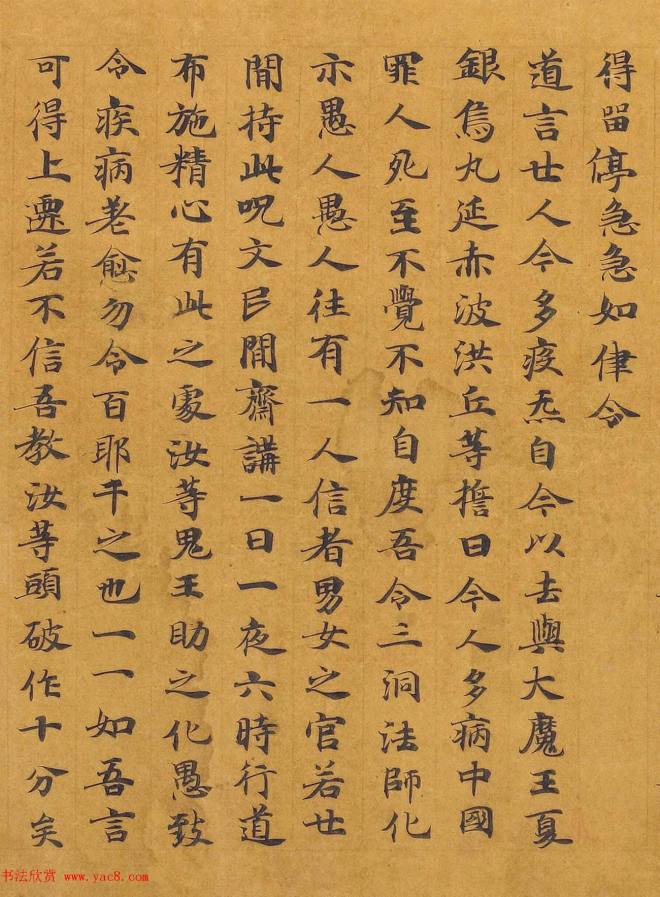 得留停急急如律令
道言廿人今多疫炁自今以去與大魔王夏
銀烏丸延赤波洪丘等擔曰今人多病中國
罪人死至不覺不知自度吾令三洞法師化
示愚人愚人往有一人信者男女之官若廿
間持此呪文民間齋講一日一夜六時行道
布施精心有此之處汝等鬼王助之化愚致
令疾病差愈勿令百耶干之也一一如吾言
可得上遷若不信吾教汝等頭破作十分矣
书法欣赏 www.yac8.com